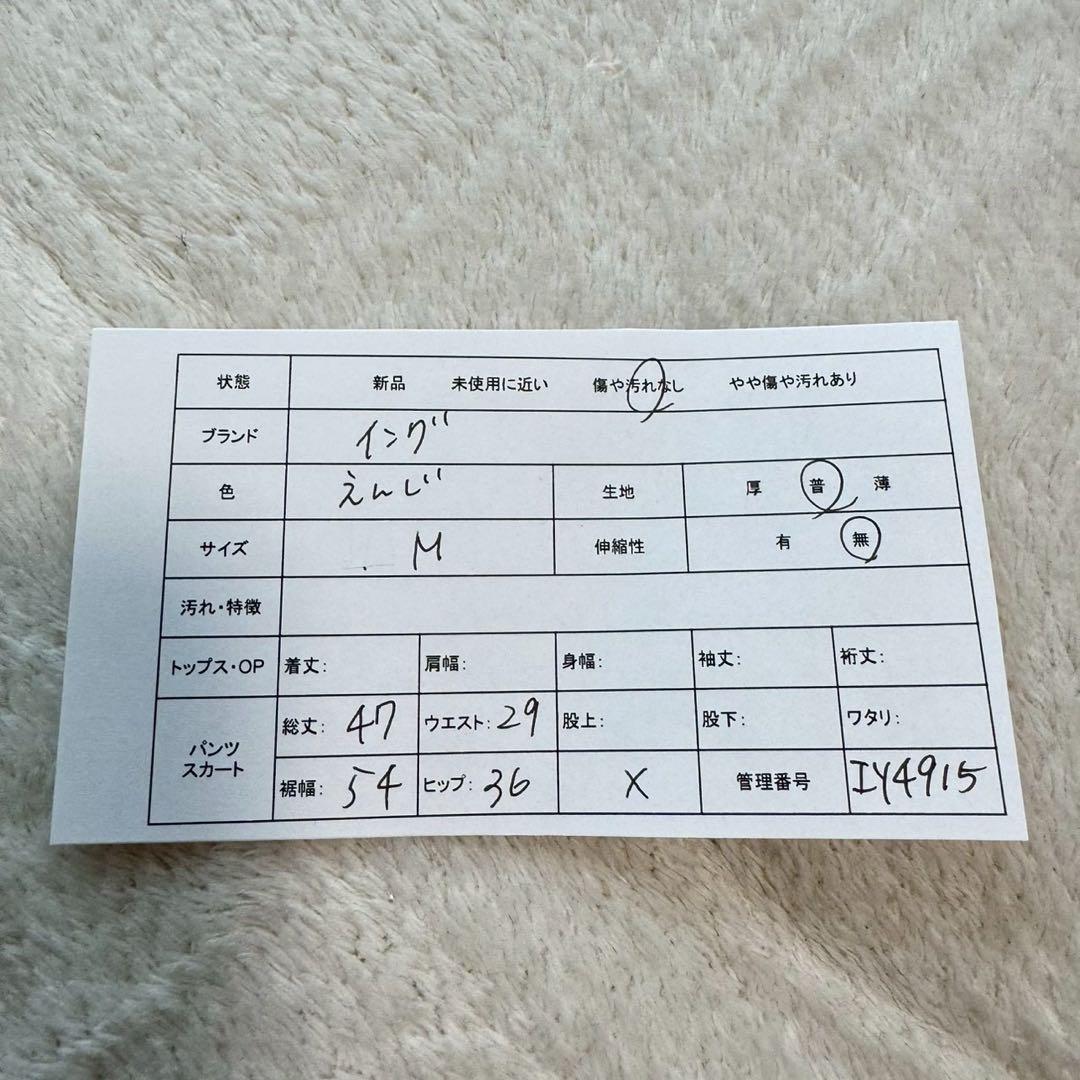 状態 新品 未使用に近い 傷や汚れなし やや傷や汚れあり
ブランド イング
色 えんじ 生地 厚 普 薄
サイズ M 伸縮性 有 無
汚れ・特徴
トップス・OP 着丈: 肩幅: 身幅: 袖丈: 裄丈:
パンツ スカート 総丈: 47 ウエスト: 29 股上: 股下: ワタリ:
裾幅: 54 ヒップ: 36 X 管理番号 IY4915